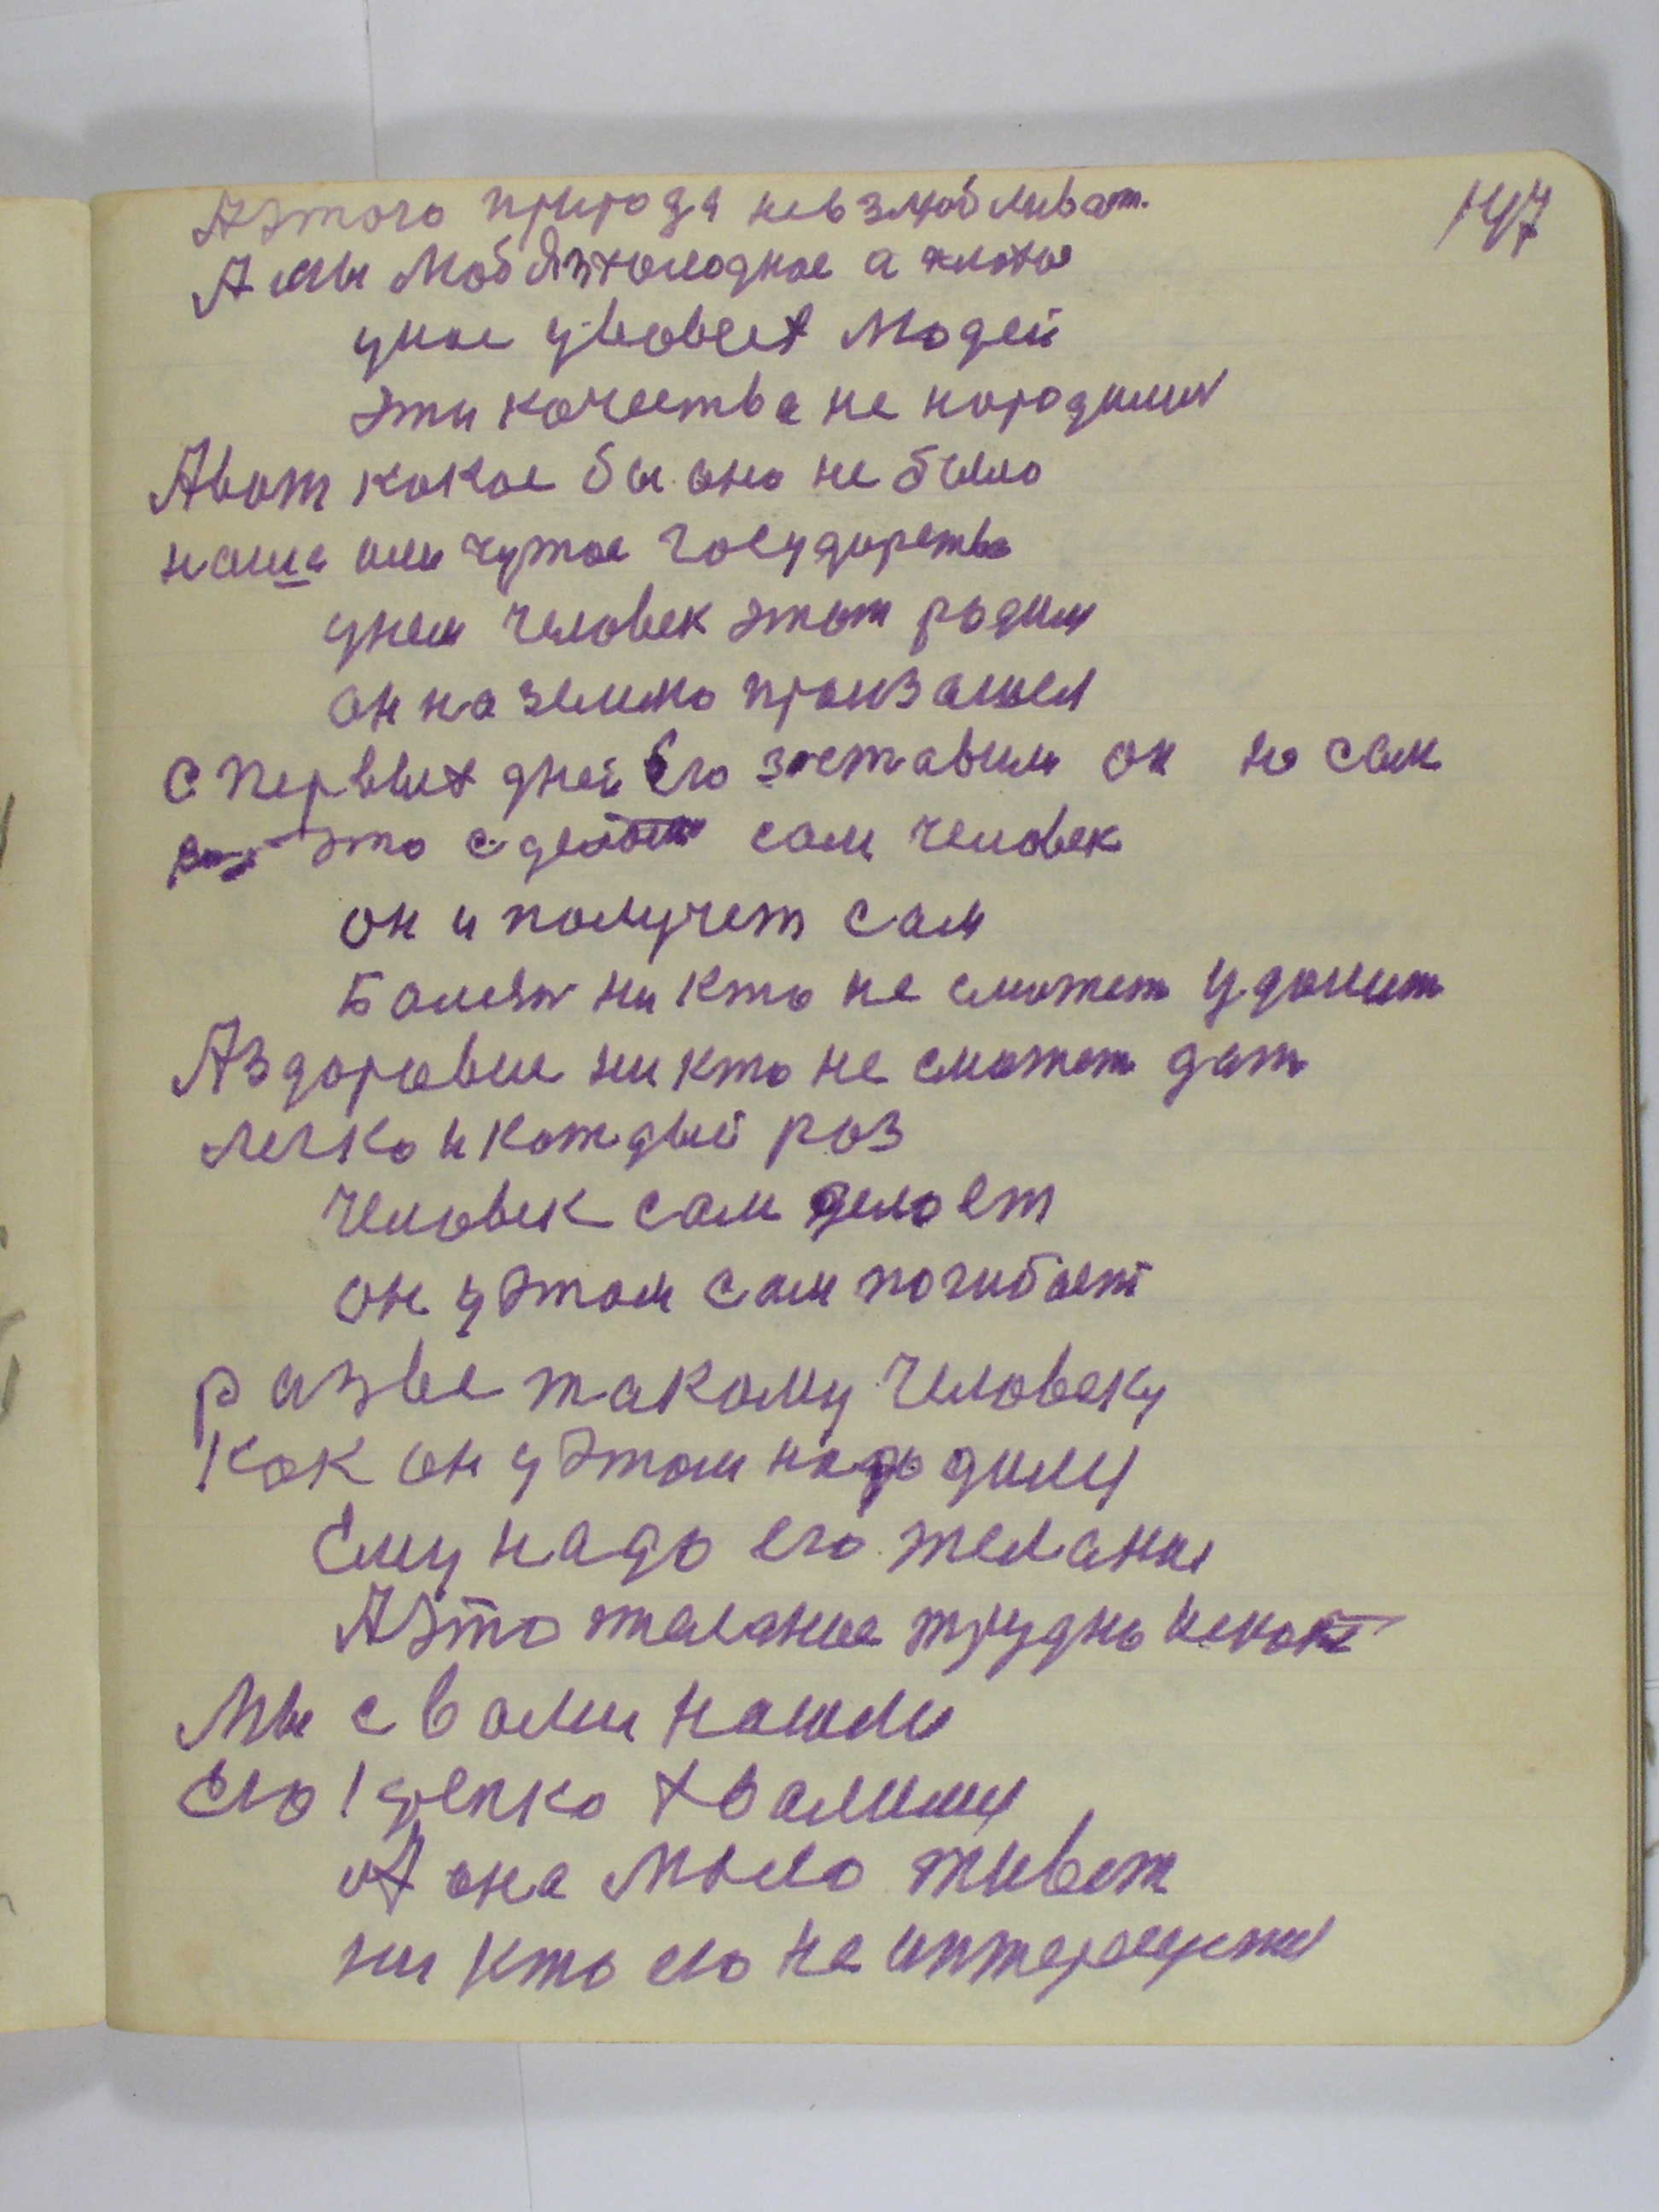 147
Аэтого природа невзлюбливат.
А мы любя холодное а плохое
уное уювсех людей
эти качества не нородили
Авот какое бы оно не было
наше или чужое государства
унем человек этот родил
он на землю произашел
С первых дней Его заставили он но сам
это сделает сам человек
он и получет сам
Болезн ни кто не сможет удолит
Аздоровие ни кто не сможет дат
легко и каждый роз
человек сам делоет
он у этом сам погибает
разве такому человеку
Как он у этом народилу
Ему надо его желание
Аэто желание трудно искат
Мы с вами нашли
Его крепко хвалиму
А она мыло живет
ни кто ею не интересуется